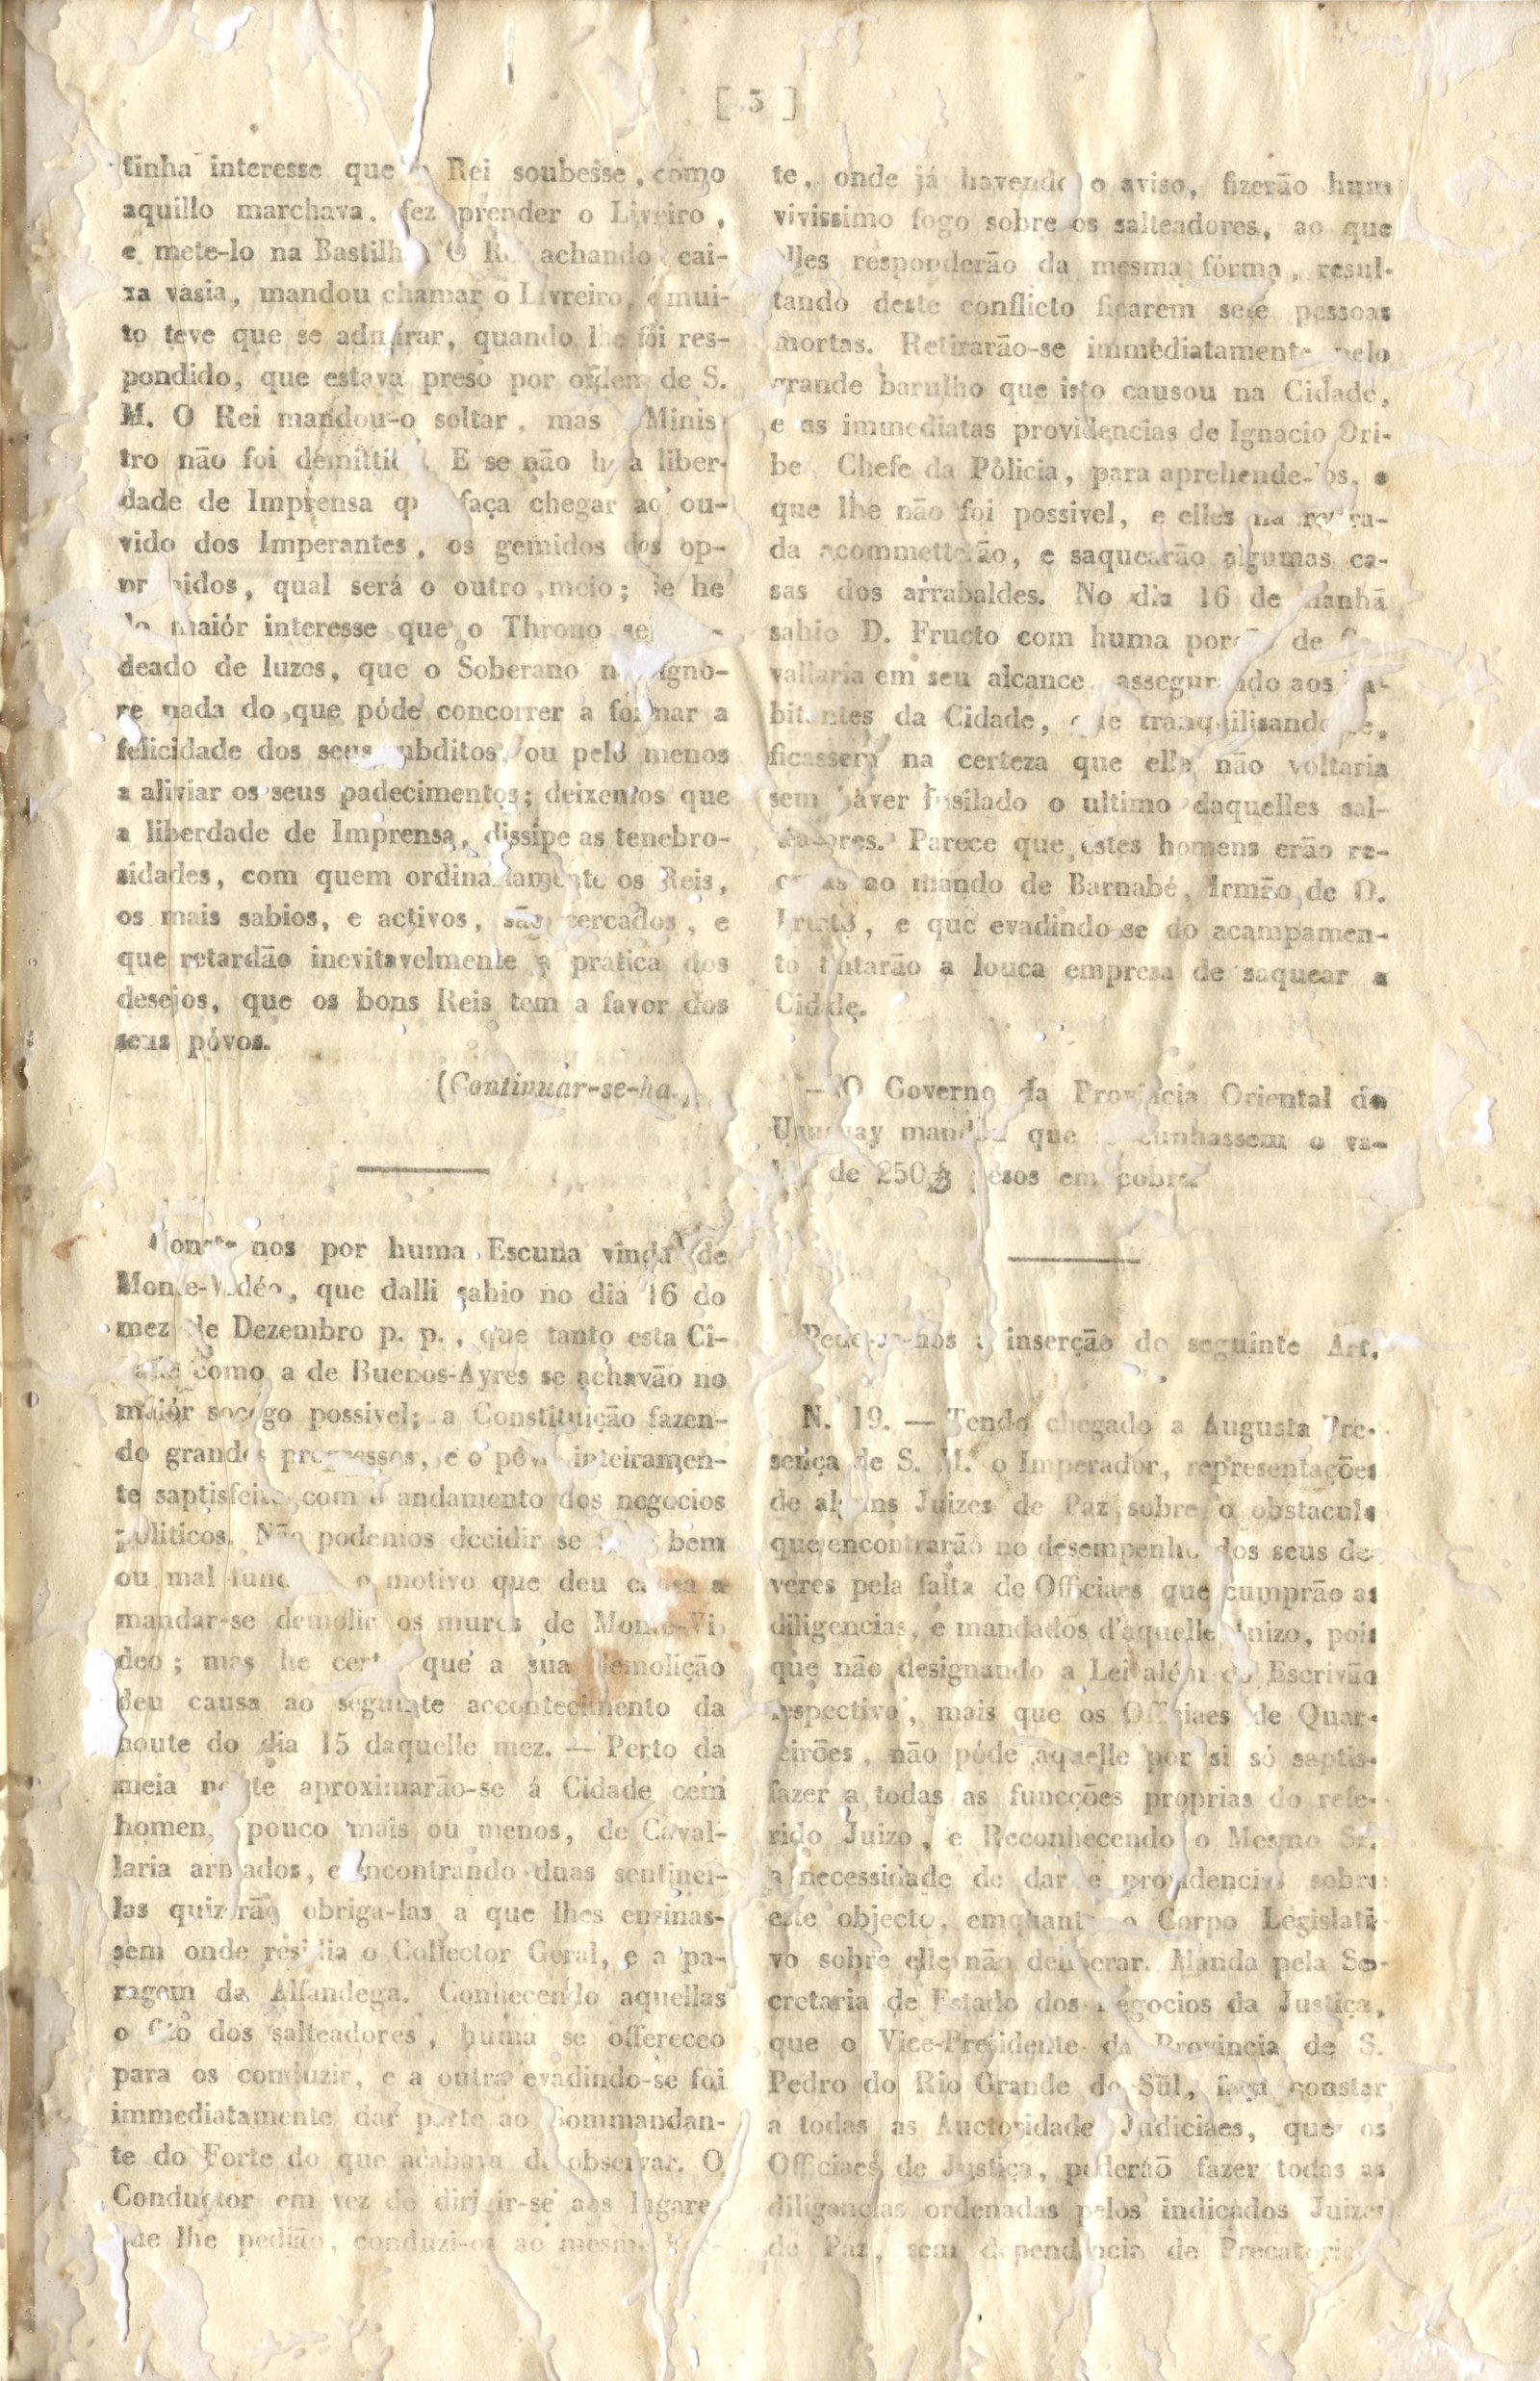 [ 3 ]
tinha interesse que o Rei soubesse, como
aquillo marchava, fez prender o Livreiro,
e mete-lo na Bastilha O Rei achando cai-
xa vasia, mandou chamar o Livreiro, e mui-
to teve que se admirar, quando lhe foi res-
pondido, que estava preso por ordem de S.
M. O Rei mandou-o soltar, mas Minis
tro não foi demittido. E se não ha a liber-
dade de Imprensa que faça chegar ao ou-
vido dos Imperantes, os gemidos dos op-
primidos, qual será o outro meio; se he
do maiór interesse que o Throno
deado de luzes, que o Soberano não igno-
re nada do que póde concorrer a formar a
felicidade dos seus subditos, ou pelo menos
a aliviar os seus padecimentos; deixemos que
a liberdade de Imprensa, dissipe as tenebro-
sidades, com quem ordinariamente os Reis,
os mais sabios, e activos, são cercados, e
que retardão inevitavelmente a pratica dos
desejos, que os bons Reis tem a favor dos
seus póvos.
(Continuar-se-ha.)
Consta nos por huma Escuna vinda de
Monte-Vidéo, que dalli sahio no dia 16 do
mez de Dezembro p. p., que tanto esta Ci-
dade como a de Buenos-Ayres se achavão no
maiór socego possivel; a Constituição fazen-
do grandes progressos, e o pôvo inteiramen-
te saptisfeito com o andamento dos negocios
politicos. Não podemos decidir se bem
ou mal o motivo que deu causa a
mandar-se demolir os muros de Monte-Vi
deo; mas he certo que a sua demolição
deu causa ao seguinte accontecimento da
noute do dia 15 daquelle mez. — Perto da
meia noute aproximarão-se á Cidade cem
homen, pouco mais ou menos, de Caval-
laria armados, e encontrando duas sentinel-
las quizerão obriga-las a que lhes ensinas-
sem onde residia o Collector Geral, e a pa-
ragem da Alfandega. Conhecendo aquellas
o fito dos salteadores, huma se offereceo
para os conduzir, e a outra evadindo-se foi
immediatamente dar parte ao Commandan-
te do Forte do que acabava de observar. O
Conductor em vez de dirigir-se aos lugares
que lhe pedião, conduzi-os ao mesmo For-
te, onde já havendo o aviso, fizerão hum
vivissimo fogo sobre os salteadores, ao que
elles responderão da mesma fórma, resul-
tando deste conflicto ficarem sete pessoas
mortas. Retirarão-se immediatamente pelo
grande barulho que isto causou na Cidade,
e as immediatas providencias de Ignacio Ori-
be, Chefe da Policia, para aprehende-los, o
que lhe não foi possivel, e elles na retira-
da acommetterão, e saquearão algumas ca-
sas dos arrabaldes. No dia 16 de manhã
sahio D. Fructo com huma porção de Ca-
vallaria em seu alcance, assegurando aos ha-
bitantes da Cidade, que tranquilisando-se,
ficassem na certeza que elle não voltaria
sem haver fusilado o ultimo daquelles sal-
teadores. Parece que estes homens erão re-
crutas ao mando de Barnabé, Irmão de D.
Fructo, e que evadindo se do acampamen-
to tentarão a louca empresa de saquear a
Cidade.
— O Governo da Provincia Oriental do
Uruguay mandou que se cunhassem o va-
lor de 250$ pesos em cobre.
Pede-se-nos a inserção do seguinte Art.
N. 19. — Tendo chegado a Augusta Pre-
sença de S. M. o Imperador, representações
de alguns Juizes de Paz sobre o obstaculo
que encontrarão no desempenho dos seus de
veres pela falta de Officiaes que cumprão as
diligencias, e mandados d'aquelle Juizo, pois
que não designando a Lei além do Escrivão
respectivo, mais que os Officiaes de Quar-
teirões, não póde aquelle por si só saptis-
fazer a todas as funcções proprias do refe-
rido Juizo, e Reconhecendo o Mesmo Sr.
a necessidade de dar-se providencias sobre
este objecto, emquanto o Corpo Legislati-
vo sobre elle não deliberar. Manda pela Se-
cretaria de Estado dos Negocios da Justiça,
que o Vice-Presidente da Provincia de S.
Pedro do Rio Grande do Sul, faça constar
a todas as Auctoridade Judiciaes, que os
Officiaes de Justiça, poderáõ fazer todas as
diligencias ordenadas pelos indicados Juizes
de Paz, sem dependencia de Precatorio